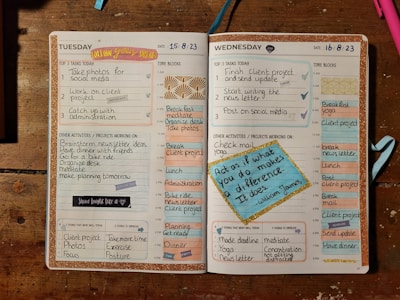 TUESDAY
DATE 15.8.23
TOP 3 TASKS TODAY
TIME BLOCKS
1 Take photos for
social media
2 Work on client
project
3 Catch up with
administration
Breakfast
meditate
Organise desk
Take photos
OTHER ACTIVITIES / PROJECTS WORKING ON
Brainstorm newsletter ideas
Have dinner with friends
Go for a bike ride
Organise desk
meditate
make planning tomorrow
Break
Client project
Lunch
Administration
Bike ride
newsletter
Client project
Planning
Get ready
Dinner
Client project
Photos
Focus
Take more time
Exercise
Positive
WEDNESDAY
DATE 16.8.23
TOP 3 TASKS TODAY
TIME BLOCKS
1 Finish client project
and send update
2 Start writing the
newsletter
3 Post on social media
Breakfast
yoga
OTHER ACTIVITIES / PROJECTS WORKING ON
Check mail
Yoga
Act as if what
you do makes
a difference
It does
- William James
Break
Client project
Lunch
Client project
Break
mail
Client project
Send update
Have dinner
made deadline
Yoga
Newsletter
meditate
Concentration
not getting
distracted